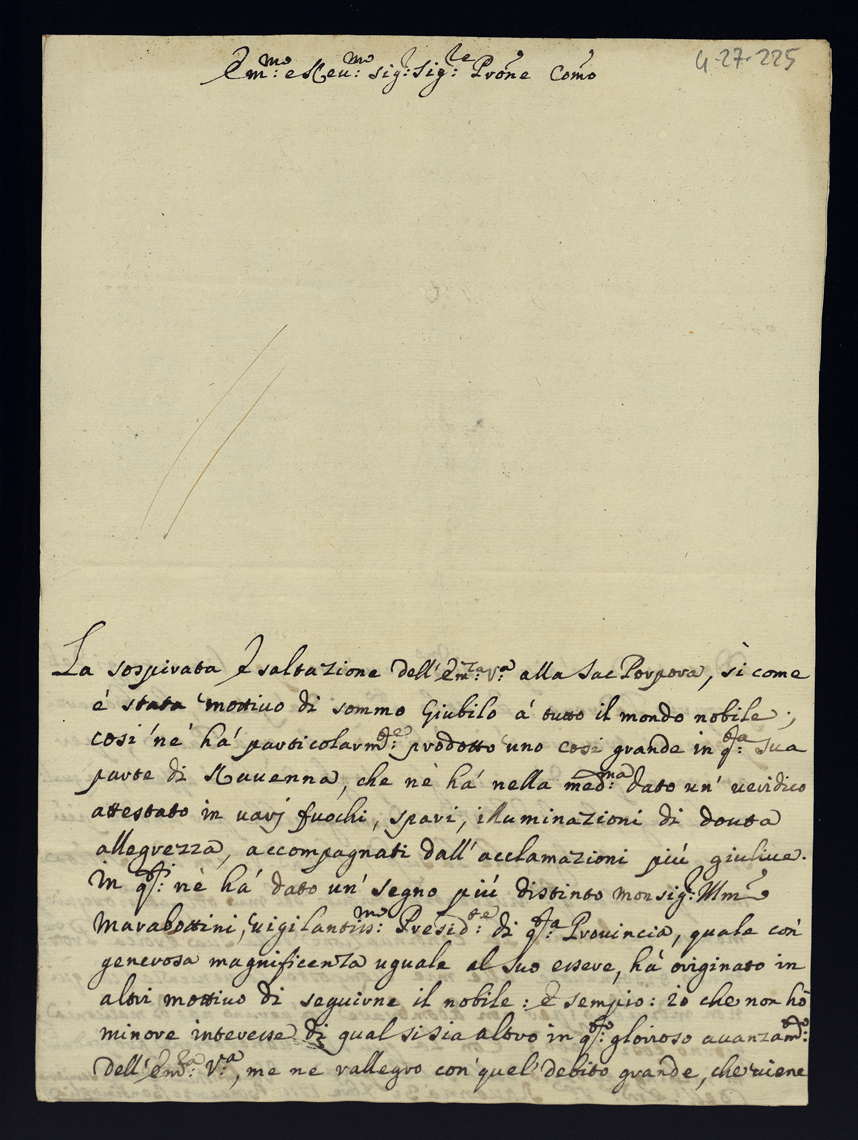 4-27-225
Em.mo e Reu.mo Sig.r Sig.re Prone Como
La sospirata Esaltazione dell'Em.za V.a alla Sac Porpora, sì come
è stata mottiuo di sommo Giubilo á tutto il mondo nobile;
così nè há particolarm.te prodotto uno così grande in q.sta sua
parte di Rauenna, che nè há nella med.ma dato un' ueridico
attestato in uarj fuochi, spari, illuminazioni di douta
allegrezza, accompagnati dall'acclamazioni piú giuliue.
In q.sti nè há dato un' segno piú distinto monsig.r Illmo
Marabottini, uigilantiss.mo Presid.te di q.sta Prouincia, quale con
generosa magnificenza uguale al suo essere, há originato in
altri mottiuo di seguirne il nobile: E sempio: io che non hò
minore interesse di qual sisia altro in q.sto gloiroso auanzam.to
dell'Em.za V.a, me ne rallegro con quel debito grande, che uiene